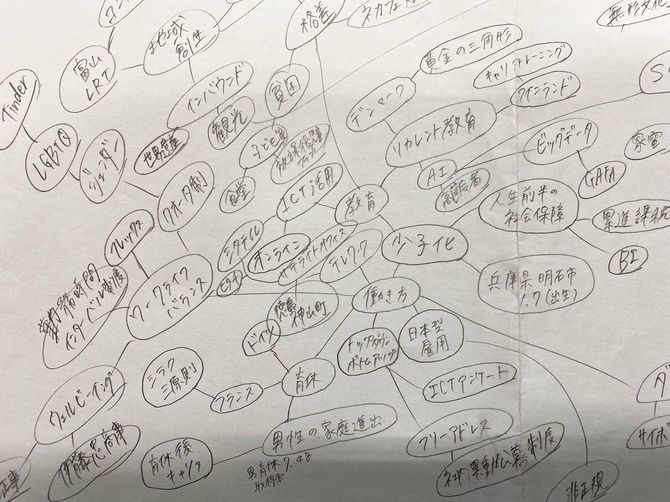 無形文化
格差
ネカフェ
地域
創生
富山
LRT
Tinder
LGBTQ
ジェンダー
インバウンド
観光
世界遺産
貧困
食堂
クオータ制
フレックス
黄金の三角形
キャリアトレーニング
フィンランド
デンマーク
リカレント教育
AI
高齢者
ビッグデータ
GAFA
家電
教育
ICT活用
オンライン
サテライトオフィス
テレワーク
少子化
人生前半の
社会保障
累進課税
BI
兵庫県明石市
1.7(出生)
ワークライフ
バランス
インターバル制度
徳島
神山町
働き方
日本型
雇用
トップダウン
ボトムアップ
ドイツ
育休
フランス
シラク
三原則
ウェルビーイング
伊藤忠商事
育休後
キャリア
男性の家庭進出
男育休7.48
取得率
ICTアンケート
フリーアドレス
社内異動公募制度
非正規
ダ
サイボ